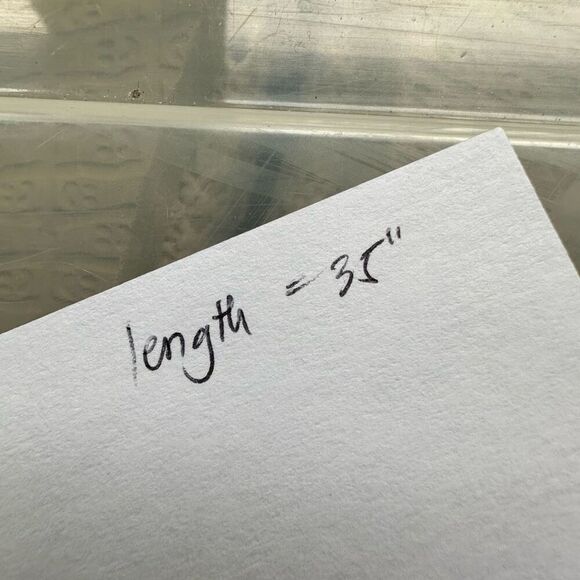 length = 35"